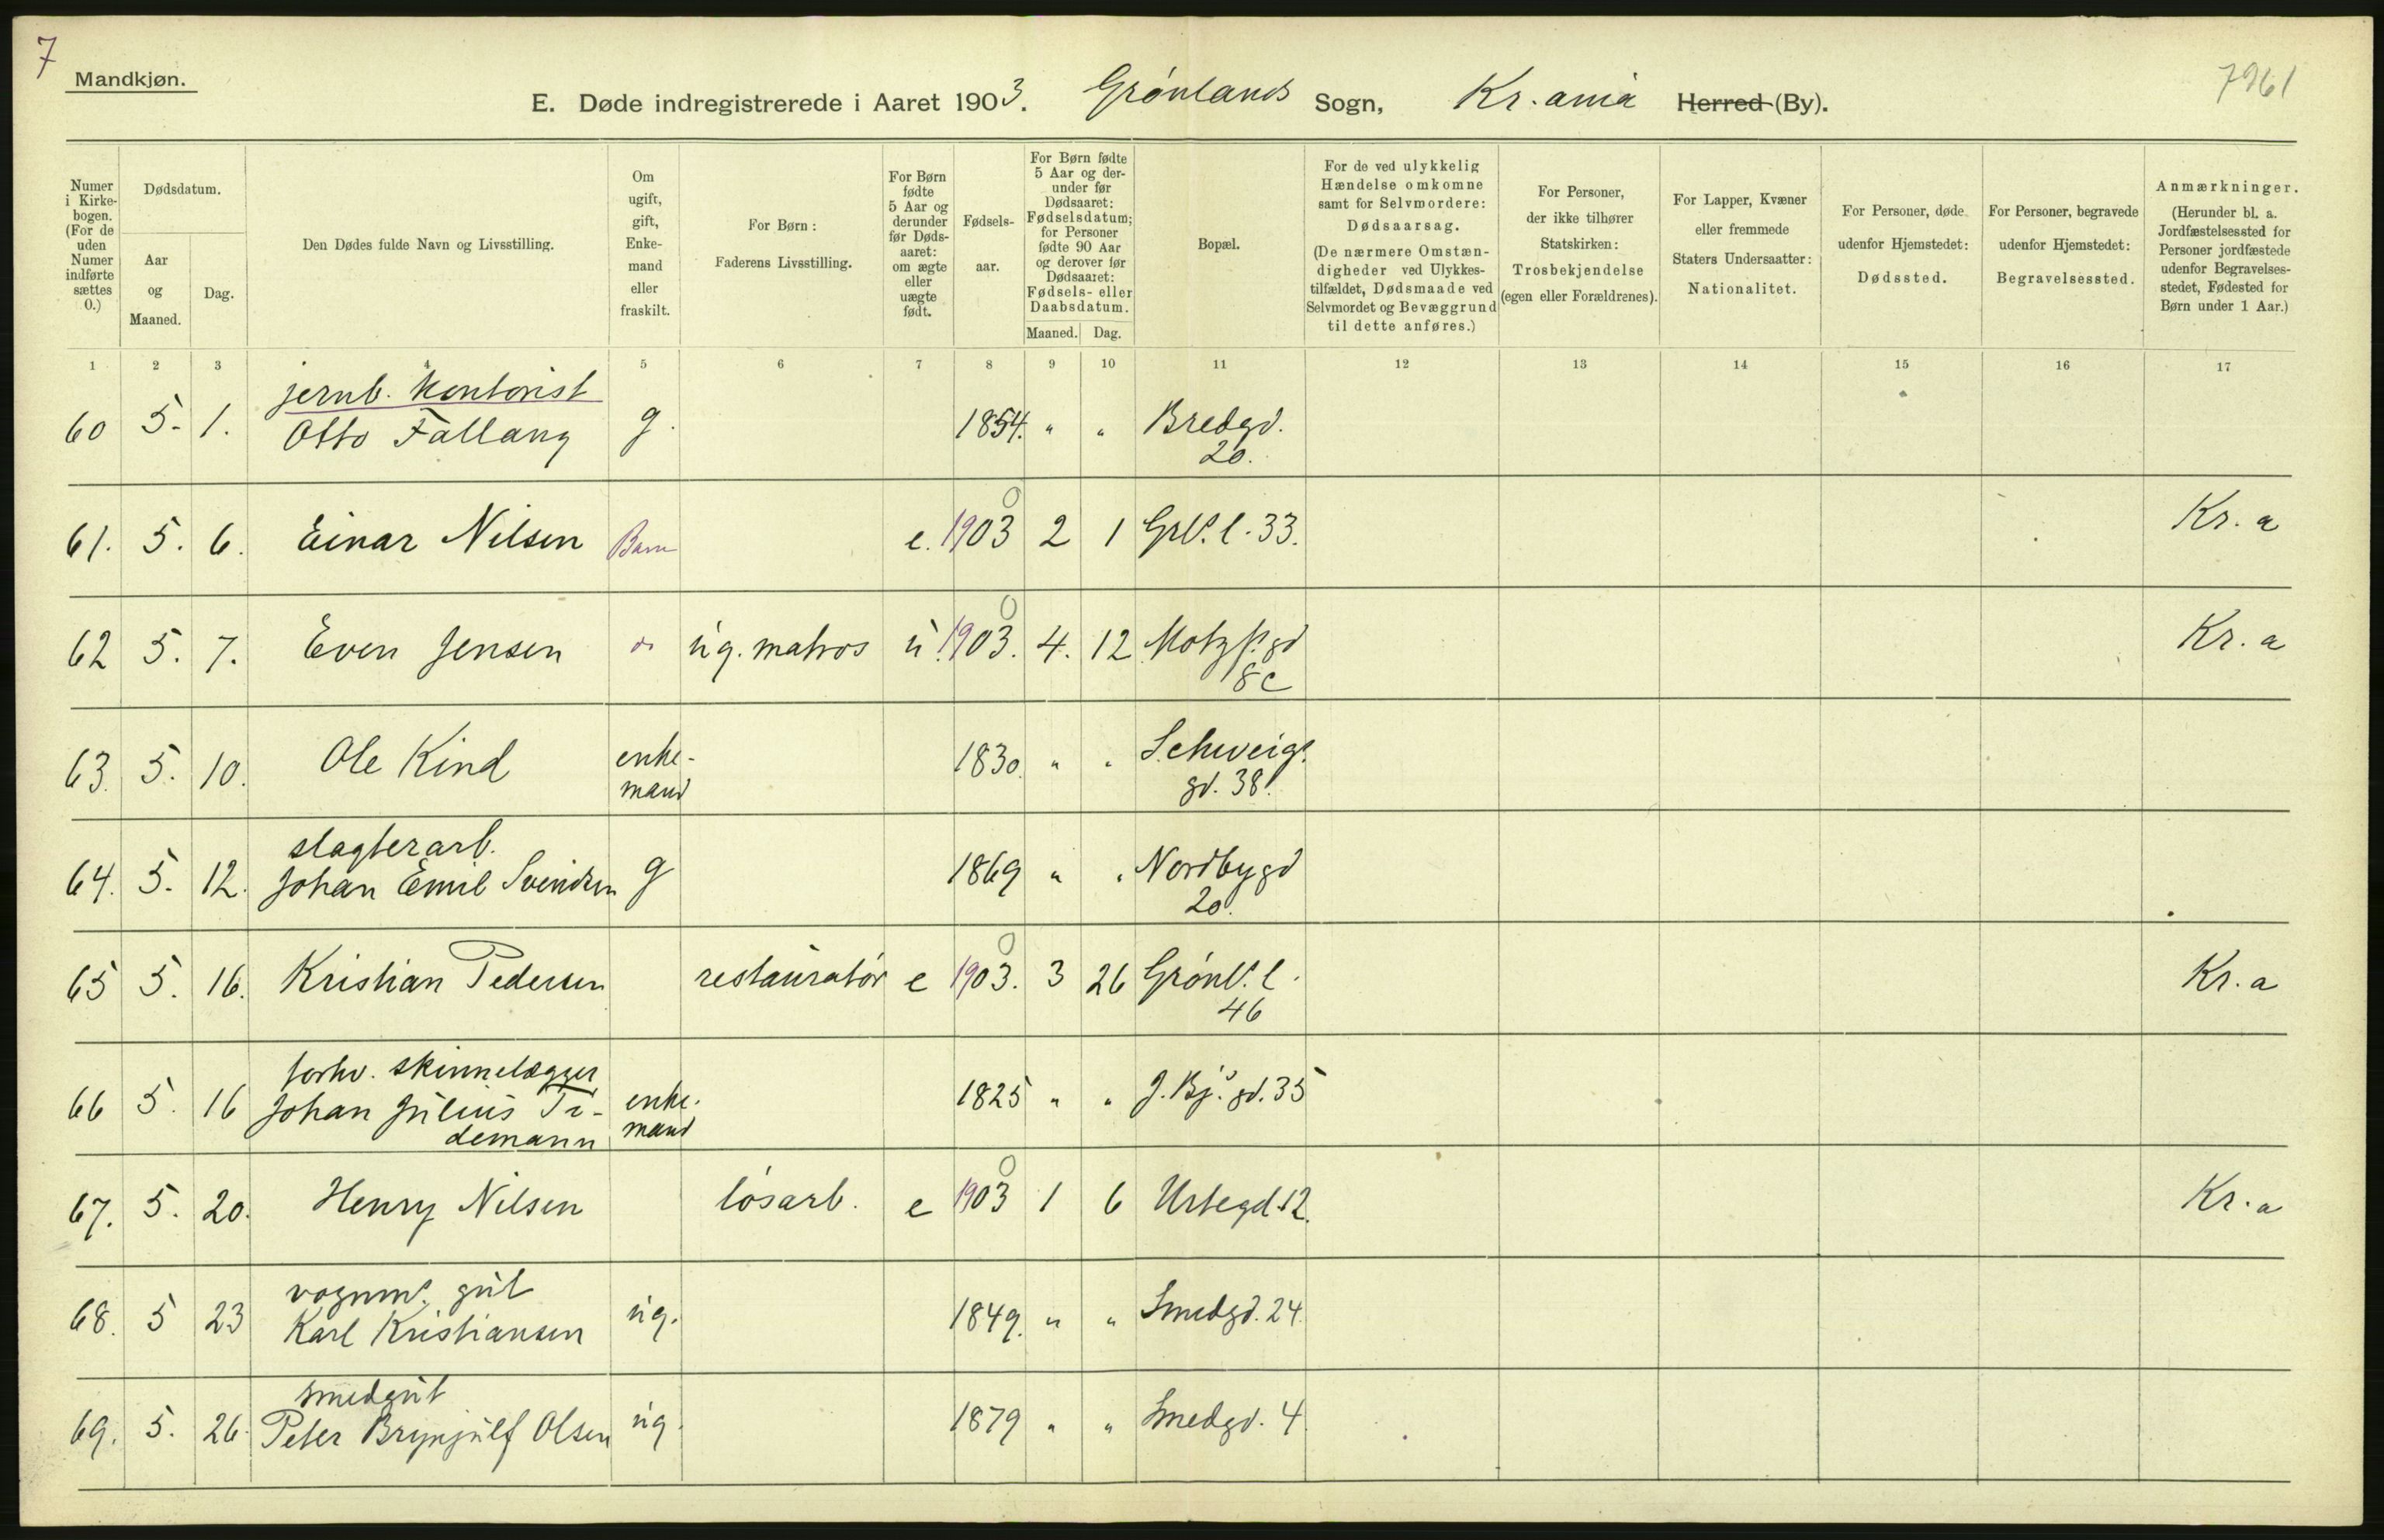 7
Mandkjøn.
7961
E. Døde indregistrerede i Aaret 1903. Grønlands Sogn, Kr.ania Herred (By).
Numer i Kirkebogen. (For de uden Numer indførte sættes 0.)
Dødsdatum.
Aar og Maaned.
Dag.
Den Dødes fulde Navn og Livsstilling.
Om ugift, gift, Enkemand eller fraskilt.
For Børn:
Faderens Livsstilling.
For Børn fødte 5 Aar og derunder før Dødsaaret: om ægte eller uægte født.
Fødselsaar.
For Børn fødte 5 Aar og derunder før Dødsaaret: Fødselsdatum; for Personer fødte 90 Aar og derover før Dødsaaret: Fødsels- eller Daabsdatum.
Maaned. Dag.
Bopæl.
For de ved ulykkelig Hændelse omkomne samt for Selvmordere: Dødsaarsag. (De nærmere Omstændigheder ved Ulykkestilfældet, Dødsmaade ved Selvmordet og Bevæggrund til dette anføres.)
For Personer, der ikke tilhører Statskirken: Trosbekjendelse (egen eller Forældrenes).
For Lapper, Kvæner eller fremmede Staters Undersaatter: Nationalitet.
For Personer, døde udenfor Hjemstedet: Dødssted.
For Personer, begravede udenfor Hjemstedet: Begravelsessted.
Anmærkninger. (Herunder bl. a. Jordfæstelsessted for Personer jordfæstede udenfor Begravelsesstedet, Fødested for Børn under 1 Aar.)
1 2 3 4 5 6 7 8 9 10 11 12 13 14 15 16 17
jernb. kontorist
60 5. 1. Otto Fallang g. 1854. " " Bredgd.
20.
61. 5. 6. Einar Nilsen Barn e. 1903 0 2 1 Grl. l. 33. Kr.a
62 5. 7. Even Jensen do ug. matros u. 1903. 0 4. 12 Motzf. gd Kr.a
8c
63. 5. 10. Ole Kind enke- 1830. " " Schweigs.
mand gd. 38.
slagterarb.
64. 5. 12. Johan Emil Svendsen g 1869 " " Nordbygd
20.
65 5. 16. Kristian Pedersen restauratør e 1903. 0 3 26 Grønl. l. Kr.a
46
forhv. skinnelægger
66 5. 16 Johan Julius Ti- enke- 1825 " " J. Bj. gd. 35
demann mand
67. 5. 20. Henry Nilsen løsarb. e 1903 0 1 6 Urtegd 12. Kr.a
vognm. gut
68. 5 23 Karl Kristiansen ug. 1849. " " Smedgd. 24.
smedgut
69. 5. 26. Peter Brynjulf Olsen ug. 1879 " " Smedgd. 4